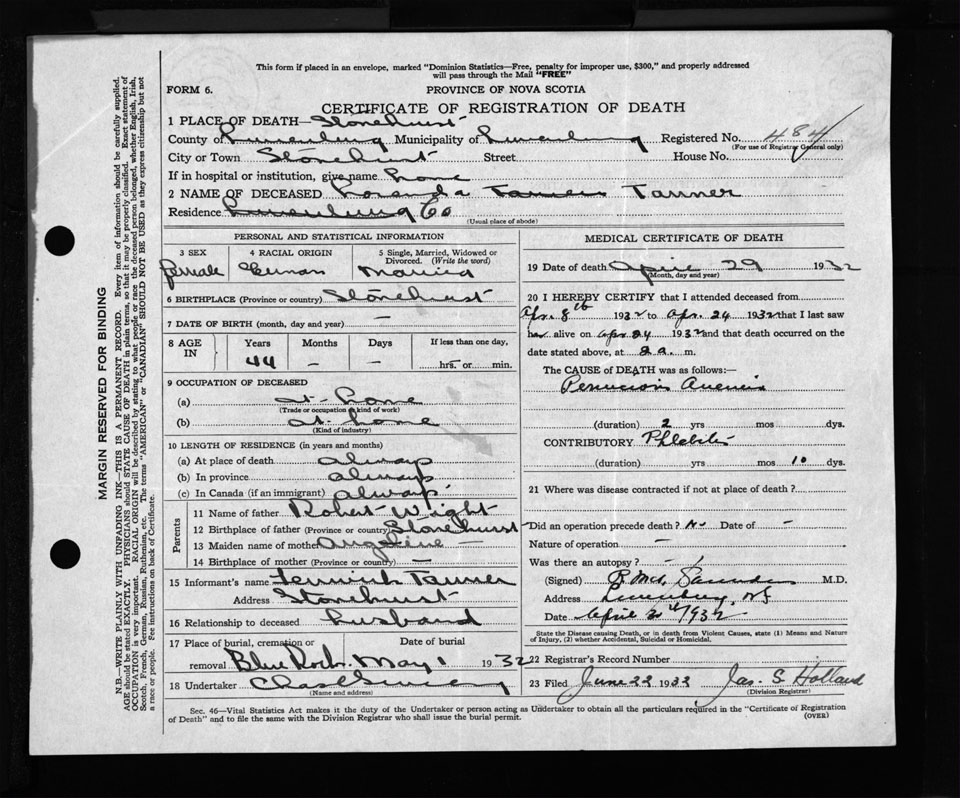 This form if placed in an envelope, marked "Dominion Statistics—Free, penalty for improper use, $300," and properly addressed
will pass through the Mail "FREE"
FORM 6. PROVINCE OF NOVA SCOTIA
CERTIFICATE OF REGISTRATION OF DEATH
1 PLACE OF DEATH— Stonehurst
County of Lunenburg Municipality of Lunenburg Registered No. 484
(For use of Registrar General only)
City or Town Stonehurst Street House No.
If in hospital or institution, give name home
2 NAME OF DECEASED Tanner
Residence Lunenburg Co
(Usual place of abode)
PERSONAL AND STATISTICAL INFORMATION
3 SEX 4 RACIAL ORIGIN 5 Single, Married, Widowed or Divorced. (Write the word)
female German Married
6 BIRTHPLACE (Province or country) Stonehurst
7 DATE OF BIRTH (month, day and year) —
8 AGE IN Years Months Days If less than one day,
44 – – hrs. or min.
9 OCCUPATION OF DECEASED
(a) at home
(Trade or occupation or kind of work)
(b) at home
(Kind of industry)
10 LENGTH OF RESIDENCE (in years and months)
(a) At place of death always
(b) In province always
(c) In Canada (if an immigrant) always
Parents
11 Name of father Robert Wright
12 Birthplace of father (Province or country) Stonehurst
13 Maiden name of mother Angeline —
14 Birthplace of mother (Province or country) —
15 Informant's name Tanner
Address Stonehurst
16 Relationship to deceased husband
17 Place of burial, cremation or removal Date of burial
Blue Rock. May 1 1932
18 Undertaker
(Name and address)
MEDICAL CERTIFICATE OF DEATH
19 Date of death April 29 1932
(Month, day and year)
20 I HEREBY CERTIFY that I attended deceased from
Apr. 8th 1932 to Apr. 24 1932 that I last saw
her alive on Apr 24 1932 and that death occurred on
date stated above, at 2 a. m.
The CAUSE of DEATH was as follows:—
Pernicious Anemia
(duration) 2 yrs mos dys.
CONTRIBUTORY Phlebitis
(duration) yrs mos 10 dys.
21 Where was disease contracted if not at place of death?
Did an operation precede death? No Date of –
Nature of operation –
Was there an autopsy? –
(Signed) Saunders M.D.
Address Lunenburg, NS
Date April 30th/932
State the Disease causing Death, or in death from Violent Causes, state (1) Means and Nature
of Injury, (2) whether Accidental, Suicidal or Homicidal.
22 Registrar's Record Number
23 Filed June 22 1932 Jas. S Holland
(Division Registrar)
Sec. 46—Vital Statistics Act makes it the duty of the Undertaker or person acting as Undertaker to obtain all the particulars required in the "Certificate of Registration
of Death" and to file the same with the Division Registrar who shall issue the burial permit. (OVER)
MARGIN RESERVED FOR BINDING
N.B.—WRITE PLAINLY WITH UNFADING INK—THIS IS A PERMANENT RECORD. Every item of information should be carefully supplied.
AGE should be stated EXACTLY. PHYSICIANS should STATE CAUSE OF DEATH in plain terms, so that it may be properly classified. Exact statement of
OCCUPATION is very important. RACIAL ORIGIN will be described by stating to what people or race the deceased person belonged, whether English, Irish,
Scotch, French, German, Russian, Ruthenian, etc. The terms "AMERICAN" or "CANADIAN" SHOULD NOT BE USED as they express citizenship but not
a race or people. See instructions on back of Certificate.